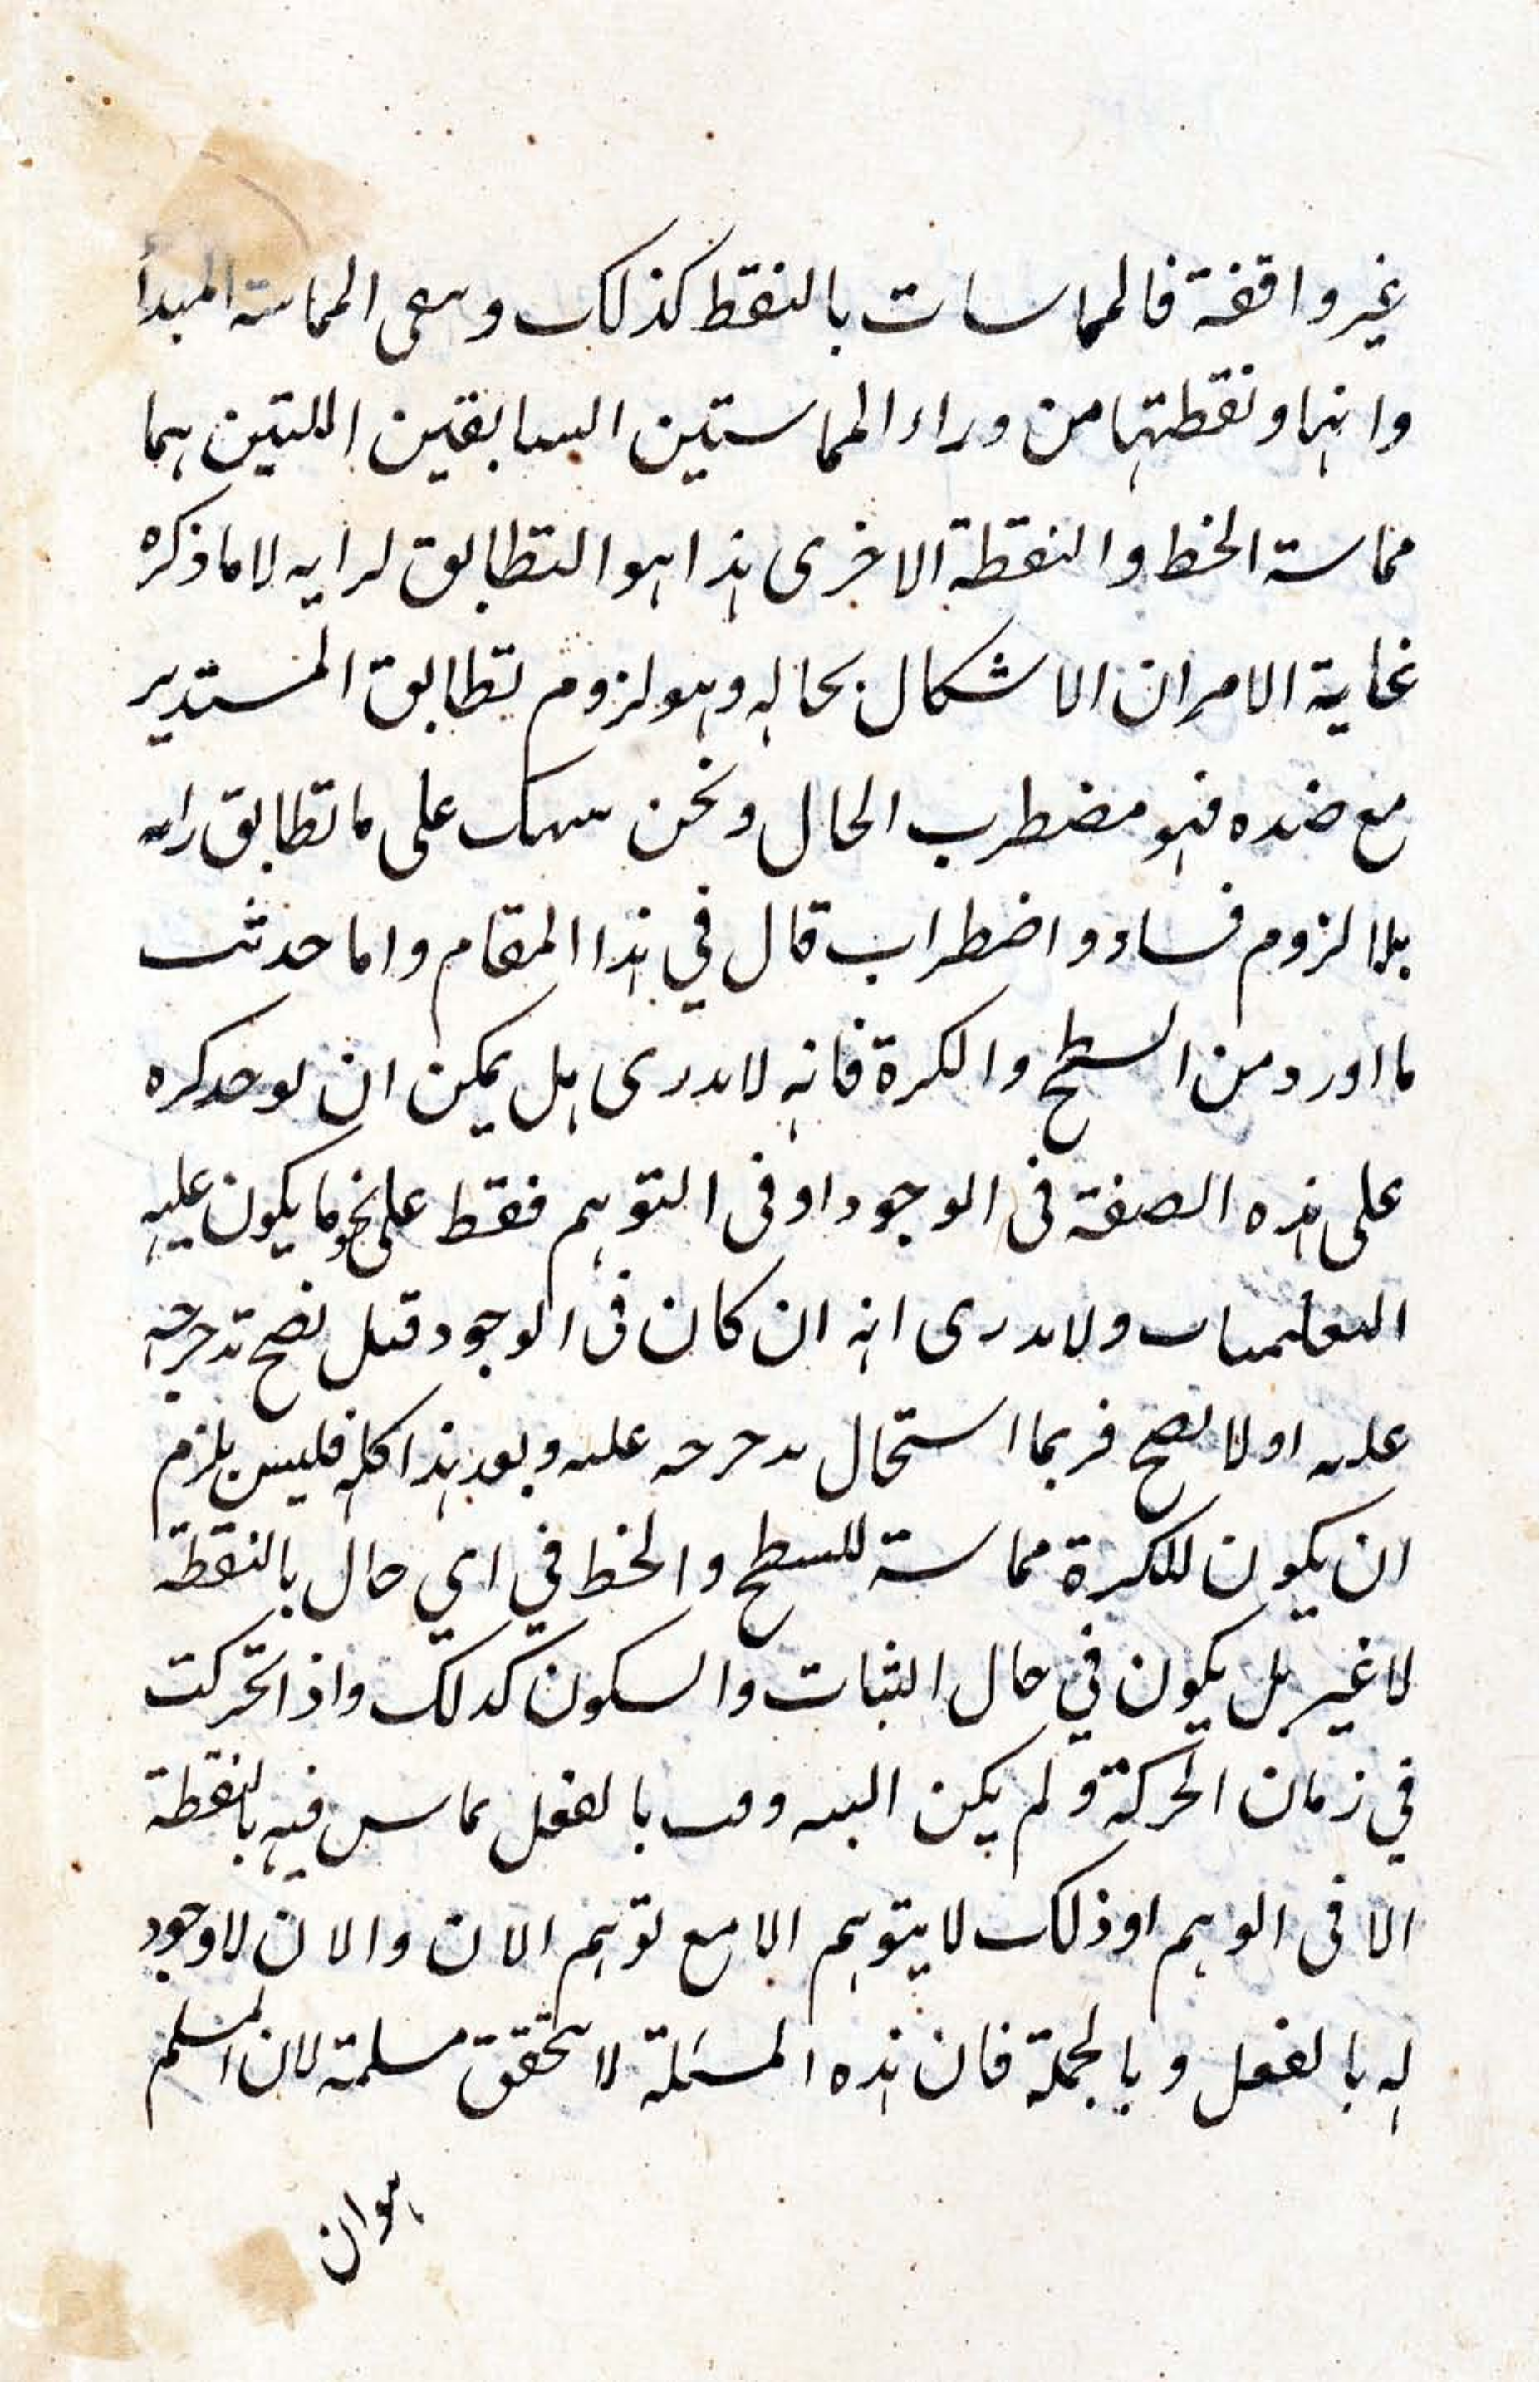 غير واقفة فالمماسات بالنقط كذلك وبقى المماسة المبدأ
وانها ونقطتها من وراء المماستين السابقتين اللتين هما
مماسة الخط والنقطة الاخرى هذا هو التطابق لرايه لا ما ذكره
غاية الامر ان الاشكال بحاله وهو لزوم تطابق المستدير
مع ضده فهو مضطرب الحال ونحن على ما تطابق رايه
بلا لزوم فساد واضطراب قال في هذا المقام واما حديث
ما اورد من السطح والكرة فانه لا يدرى هل يمكن ان يوجد كره
على هذه الصفة فى الوجود او فى التوهم فقط على نحو ما يكون عليه
التعليميات ولا يدرى انه ان كان فى الوجود فهل يصح تدحرجه
عليه او لا يصح فربما استحال تدحرجه عليه وبعد هذا كله فليس يلزم
ان يكون للكرة مماسة للسطح والخط في اي حال بالنقطة
لا غير بل يكون في حال الثبات والسكون كذلك واذا تحركت
في زمان الحركة و لم يكن البته وقت بالفعل يماس فيه بالنقطة
الا فى الوهم اوذلك لا يتوهم الا مع توهم الان والان لا وجود
له بالفعل وبالجملة فان هذه المسئلة لا تتحقق مسلمة لان المسلم
هو ان